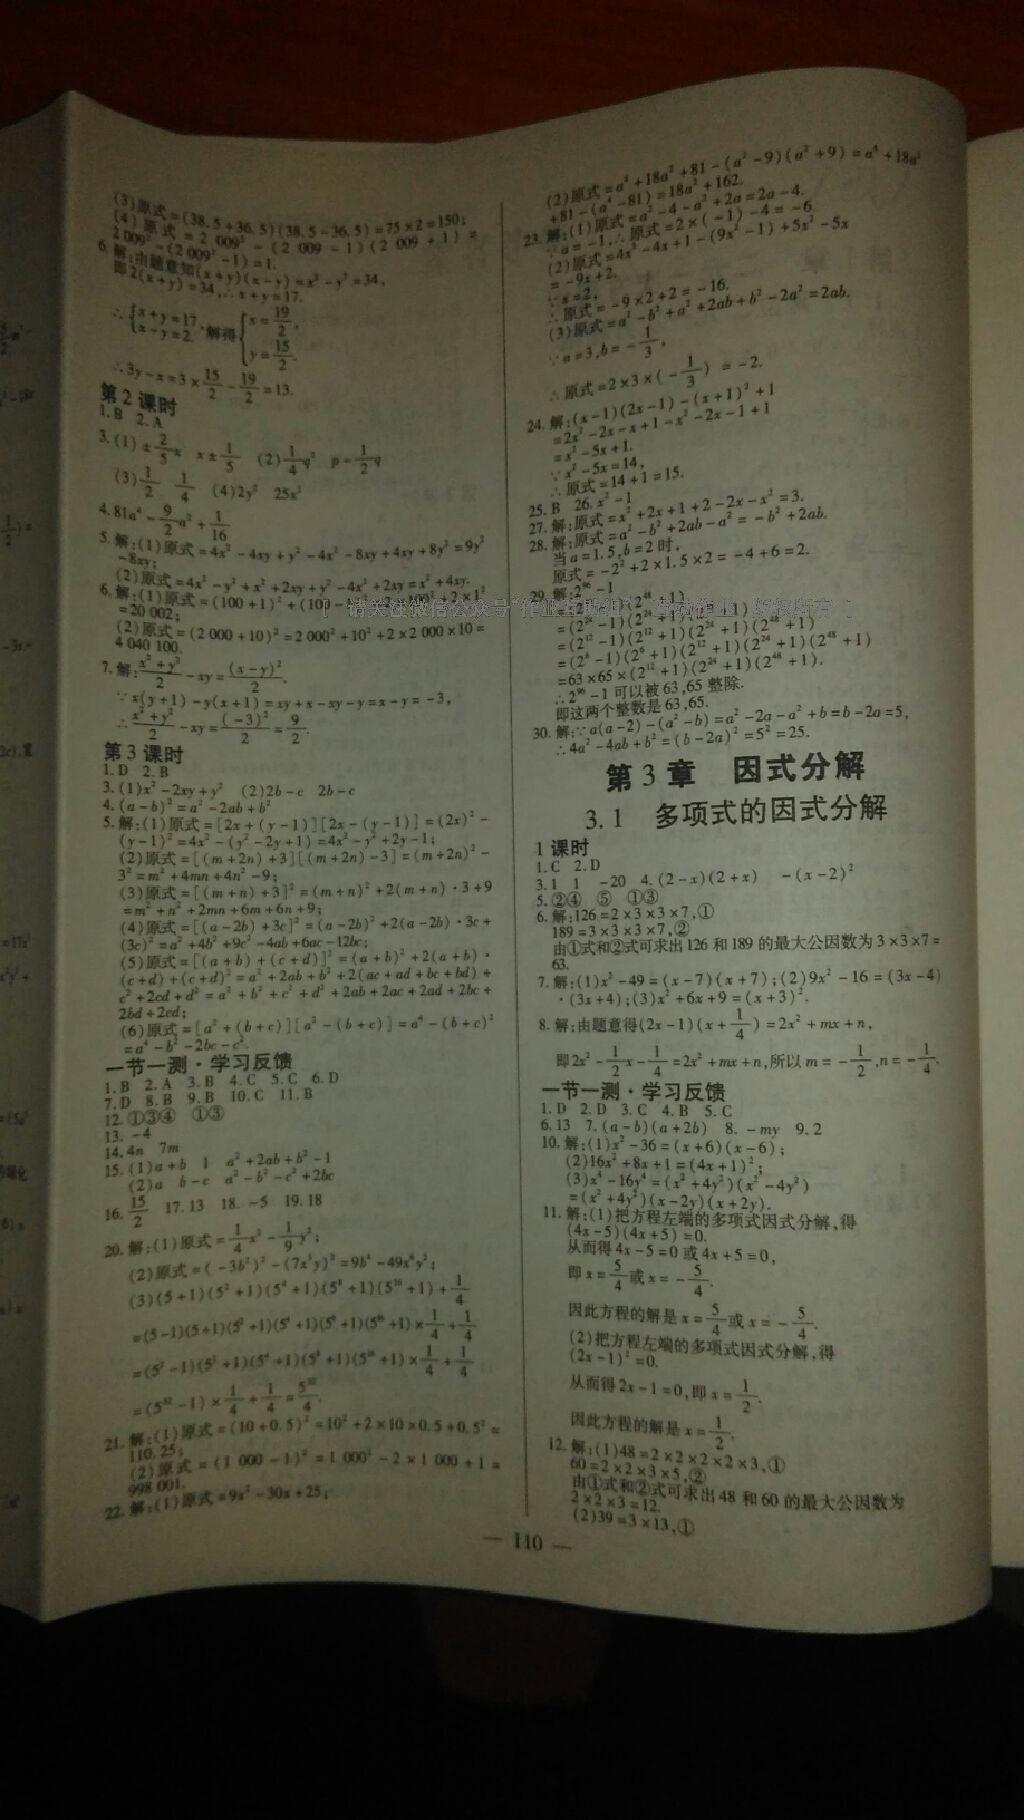 (3)原式=(38.5+36.5)(38.5-36.5)=75×2=150;
(4)原式=2 009²-(2 009-1)(2 009+1)=
2 009²-(2 009²-1)=1.
6.解:由题意知(x+y)(x-y)=x²-y²=34,
即2(x+y)=34,∴x+y=17.
∴{x+y=17, x-y=2. 解得{x=19/2, y=15/2.
∴3y-x=3×15/2-19/2=13.
第2课时
1.B 2.A
3.(1)±2/5x x±1/5 (2)1/4q² p=1/2q
(3)1/2 1/4 (4)2y² 25x²
4.81a⁴-9/2a²+1/16
5.解:(1)原式=4x²-4xy+y²-4x²-8xy+4xy+8y²=9y²
-8xy;
(2)原式=4x²-y²+x²+2xy+y²-4x²+2xy=x²+4xy.
6.解:(1)原式=(100+1)²+(100-1)²
=20 002;
(2)原式=(2 000+10)²=2 000²+10²+2×2 000×10=
4 040 100.
7.解:(x²+y²)/2-xy=(x-y)²/2.
∵x(y+1)-y(x+1)=xy+x-xy-y=x-y=-3,
∴(x²+y²)/2-xy=(-3)²/2=9/2.
第3课时
1.D 2.B
3.(1)x²-2xy+y² (2)2b-c 2b-c
4.(a-b)²=a²-2ab+b²
5.解:(1)原式=[2x+(y-1)][2x-(y-1)]=(2x)²-
(y-1)²=4x²-(y²-2y+1)=4x²-y²+2y-1;
(2)原式=[(m+2n)+3][(m+2n)-3]=(m+2n)²-
3²=m²+4mn+4n²-9;
(3)原式=[(m+n)+3]²=(m+n)²+2(m+n)·3+9
=m²+n²+2mn+6m+6n+9;
(4)原式=[(a-2b)+3c]²=(a-2b)²+2(a-2b)·3c+
(3c)²=a²+4b²+9c²-4ab+6ac-12bc;
(5)原式=[(a+b)+(c+d)]²=(a+b)²+2(a+b)·
(c+d)+(c+d)²=a²+2ab+b²+2(ac+ad+bc+bd)+
c²+2cd+d²=a²+b²+c²+d²+2ab+2ac+2ad+2bc+
2bd+2cd;
(6)原式=[a²+(b+c)][a²-(b+c)]=a⁴-(b+c)²
=a⁴-b²-2bc-c².
一节一测·学习反馈
1.B 2.A 3.B 4.C 5.C 6.D
7.D 8.B 9.B 10.C 11.B
12.①③④ ①③
13.-4
14.4n 7m
15.(1)a+b 1 a²+2ab+b²-1
(2)a b-c a²-b²-c²+2bc
16.15/2 17.13 18.-5 19.18
20.解:(1)原式=1/4x²-1/9y²;
(2)原式=(-3b²)²-(7x³y)²=9b⁴-49x⁶y²;
(3)(5+1)(5²+1)(5⁴+1)(5⁸+1)(5¹⁶+1)+1/4
=(5-1)(5+1)(5²+1)(5⁴+1)(5⁸+1)(5¹⁶+1)×1/4+1/4
=(5²-1)(5²+1)(5⁴+1)(5⁸+1)(5¹⁶+1)×1/4+1/4
=(5³²-1)×1/4+1/4=5³²/4.
21.解:(1)原式=(10+0.5)²=10²+2×10×0.5+0.5²=
110.25;
(2)原式=(1 000-1)²=1 000²-2×1 000+1=
998 001.
22.解:(1)原式=9x²-30x+25;
(2)原式=a⁴+18a²+81-(a²-9)(a²+9)=a⁴+18a²
+81-(a⁴-81)=18a²+162.
23.解:(1)原式=a²-4-a²+2a=2a-4.
∵a=-1,∴原式=2×(-1)-4=-6.
(2)原式=4x²-4x+1-(9x²-1)+5x²-5x
=-9x+2.
∵x=2,
∴原式=-9×2+2=-16.
(3)原式=a²-b²+a²+2ab+b²-2a²=2ab.
∵a=3,b=-1/3,
∴原式=2×3×(-1/3)=-2.
24.解:(x-1)(2x-1)-(x+1)²+1
=2x²-2x-x+1-x²-2x-1+1
=x²-5x+1.
∵x²-5x=14,
∴原式=14+1=15.
25.B 26.x²-1
27.解:原式=x²+2x+1+2-2x-x²=3.
28.解:原式=a²-b²+2ab-a²=-b²+2ab.
当a=1.5,b=2时,
原式=-2²+2×1.5×2=-4+6=2.
29.解:2⁹⁶-1
=(2⁴⁸-1)(2⁴⁸+1)
=(2²⁴-1)(2²⁴+1)(2⁴⁸+1)
=(2¹²-1)(2¹²+1)(2²⁴+1)(2⁴⁸+1)
=(2⁶-1)(2⁶+1)(2¹²+1)(2²⁴+1)(2⁴⁸+1)
=63×65×(2¹²+1)(2²⁴+1)(2⁴⁸+1),
∴2⁹⁶-1可以被63,65整除.
即这两个整数是63,65.
30.解:∵a(a-2)-(a²-b)=a²-2a-a²+b=b-2a=5,
∴4a²-4ab+b²=(b-2a)²=5²=25.
第3章 因式分解
3.1 多项式的因式分解
1课时
1.C 2.D
3.1 1 -20 4.(2-x)(2+x) -(x-2)²
5.②④ ⑤ ①③
6.解:126=2×3×3×7,①
189=3×3×3×7,②
由①式和②式可求出126和189的最大公因数为3×3×7=
63.
7.解:(1)x²-49=(x-7)(x+7);(2)9x²-16=(3x-4)
·(3x+4);(3)x²+6x+9=(x+3)².
8.解:由题意得(2x-1)(x+1/4)=2x²+mx+n,
即2x²-1/2x-1/4=2x²+mx+n,所以m=-1/2,n=-1/4.
一节一测·学习反馈
1.D 2.D 3.C 4.B 5.C
6.13 7.(a-b)(a+2b) 8.-my 9.2
10.解:(1)x²-36=(x+6)(x-6);
(2)16x²+8x+1=(4x+1)²;
(3)x⁴-16y⁴=(x²+4y²)(x²-4y²)
=(x²+4y²)(x-2y)(x+2y).
11.解:(1)把方程左端的多项式因式分解,得
(4x-5)(4x+5)=0.
从而得4x-5=0或4x+5=0,
即x=5/4或x=-5/4.
因此方程的解是x=5/4或x=-5/4.
(2)把方程左端的多项式因式分解,得
(2x-1)²=0.
从而得2x-1=0,即x=1/2.
因此方程的解是x=1/2.
12.解:(1)48=2×2×2×2×3,①
60=2×2×3×5,②
由①式和②式可求出48和60的最大公因数为
2×2×3=12.
(2)39=3×13,①
— 110 —